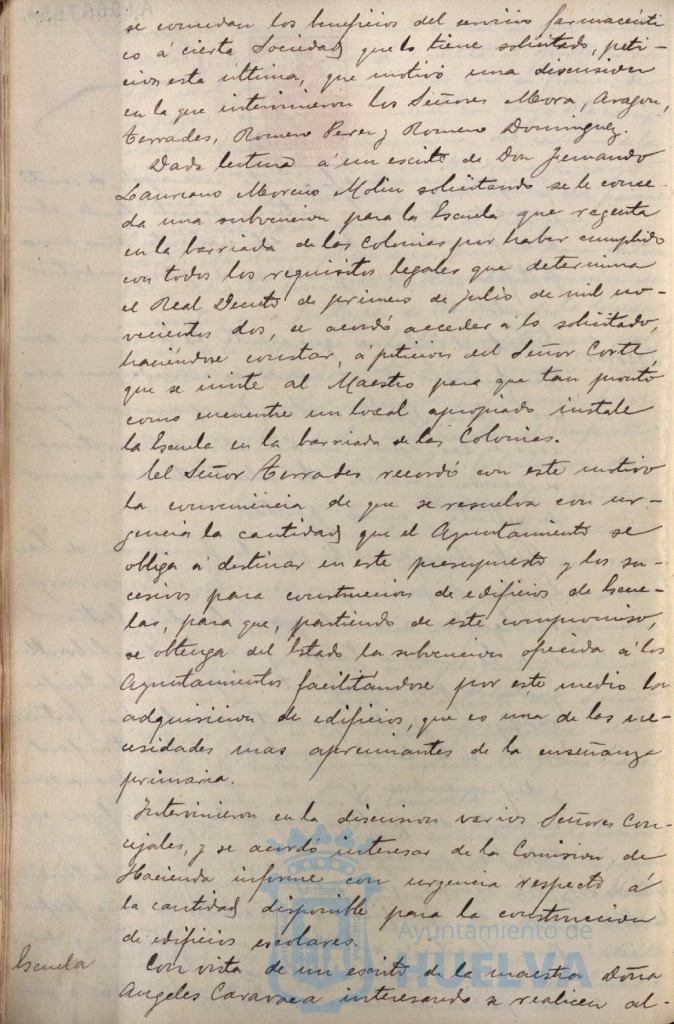 se concedan los beneficios del servicio farmacéuti
co á cierta Sociedad que lo tiene solicitado, peti-
cion esta última, que motivó una discusion
en la que intervinieron los Señores Mora, Aragon,
Terrades, Romero Perez y Romero Dominguez.
Dada lectura á un escrito de Don Fernando
Laureano Moreno Molin solicitando se le conce-
da una subvencion para la Escuela que regenta
en la barriada de las Colonias por haber cumplido
con todos los requisitos legales que determina
el Real Decreto de primero de julio de mil no-
vecientos dos, se acordó acceder á lo solicitado,
haciéndose constar, á peticion del Señor Corté,
que se invite al Maestro para que tan pronto
como encuentre un local apropiado instale
la Escuela en la barriada de las Colonias.
El Señor Terrades recordó con este motivo
la conveniencia de que se resuelva con ur-
gencia la cantidad que el Ayuntamiento se
obliga á destinar en este presupuesto y los su-
cesivos para construccion de edificios de Escue-
las, para que, partiendo de este compromiso,
se obtenga del Estado la subvencion ofrecida á los
Ayuntamientos facilitándose por este medio la
adquisicion de edificios, que es una de las ne-
cesidades mas apremiantes de la enseñanza
primaria.
Intervinieron en la discusion varios Señores Con-
cejales, y se acordó interesar de la Comision de
Hacienda informe con urgencia respecto á
la cantidad disponible para la construccion
de edificios escolares.
Escuela Con vista de un escrito de la maestra Doña
Angeles Caravaca interesando se realicen al-
Ayuntamiento de
HUELVA